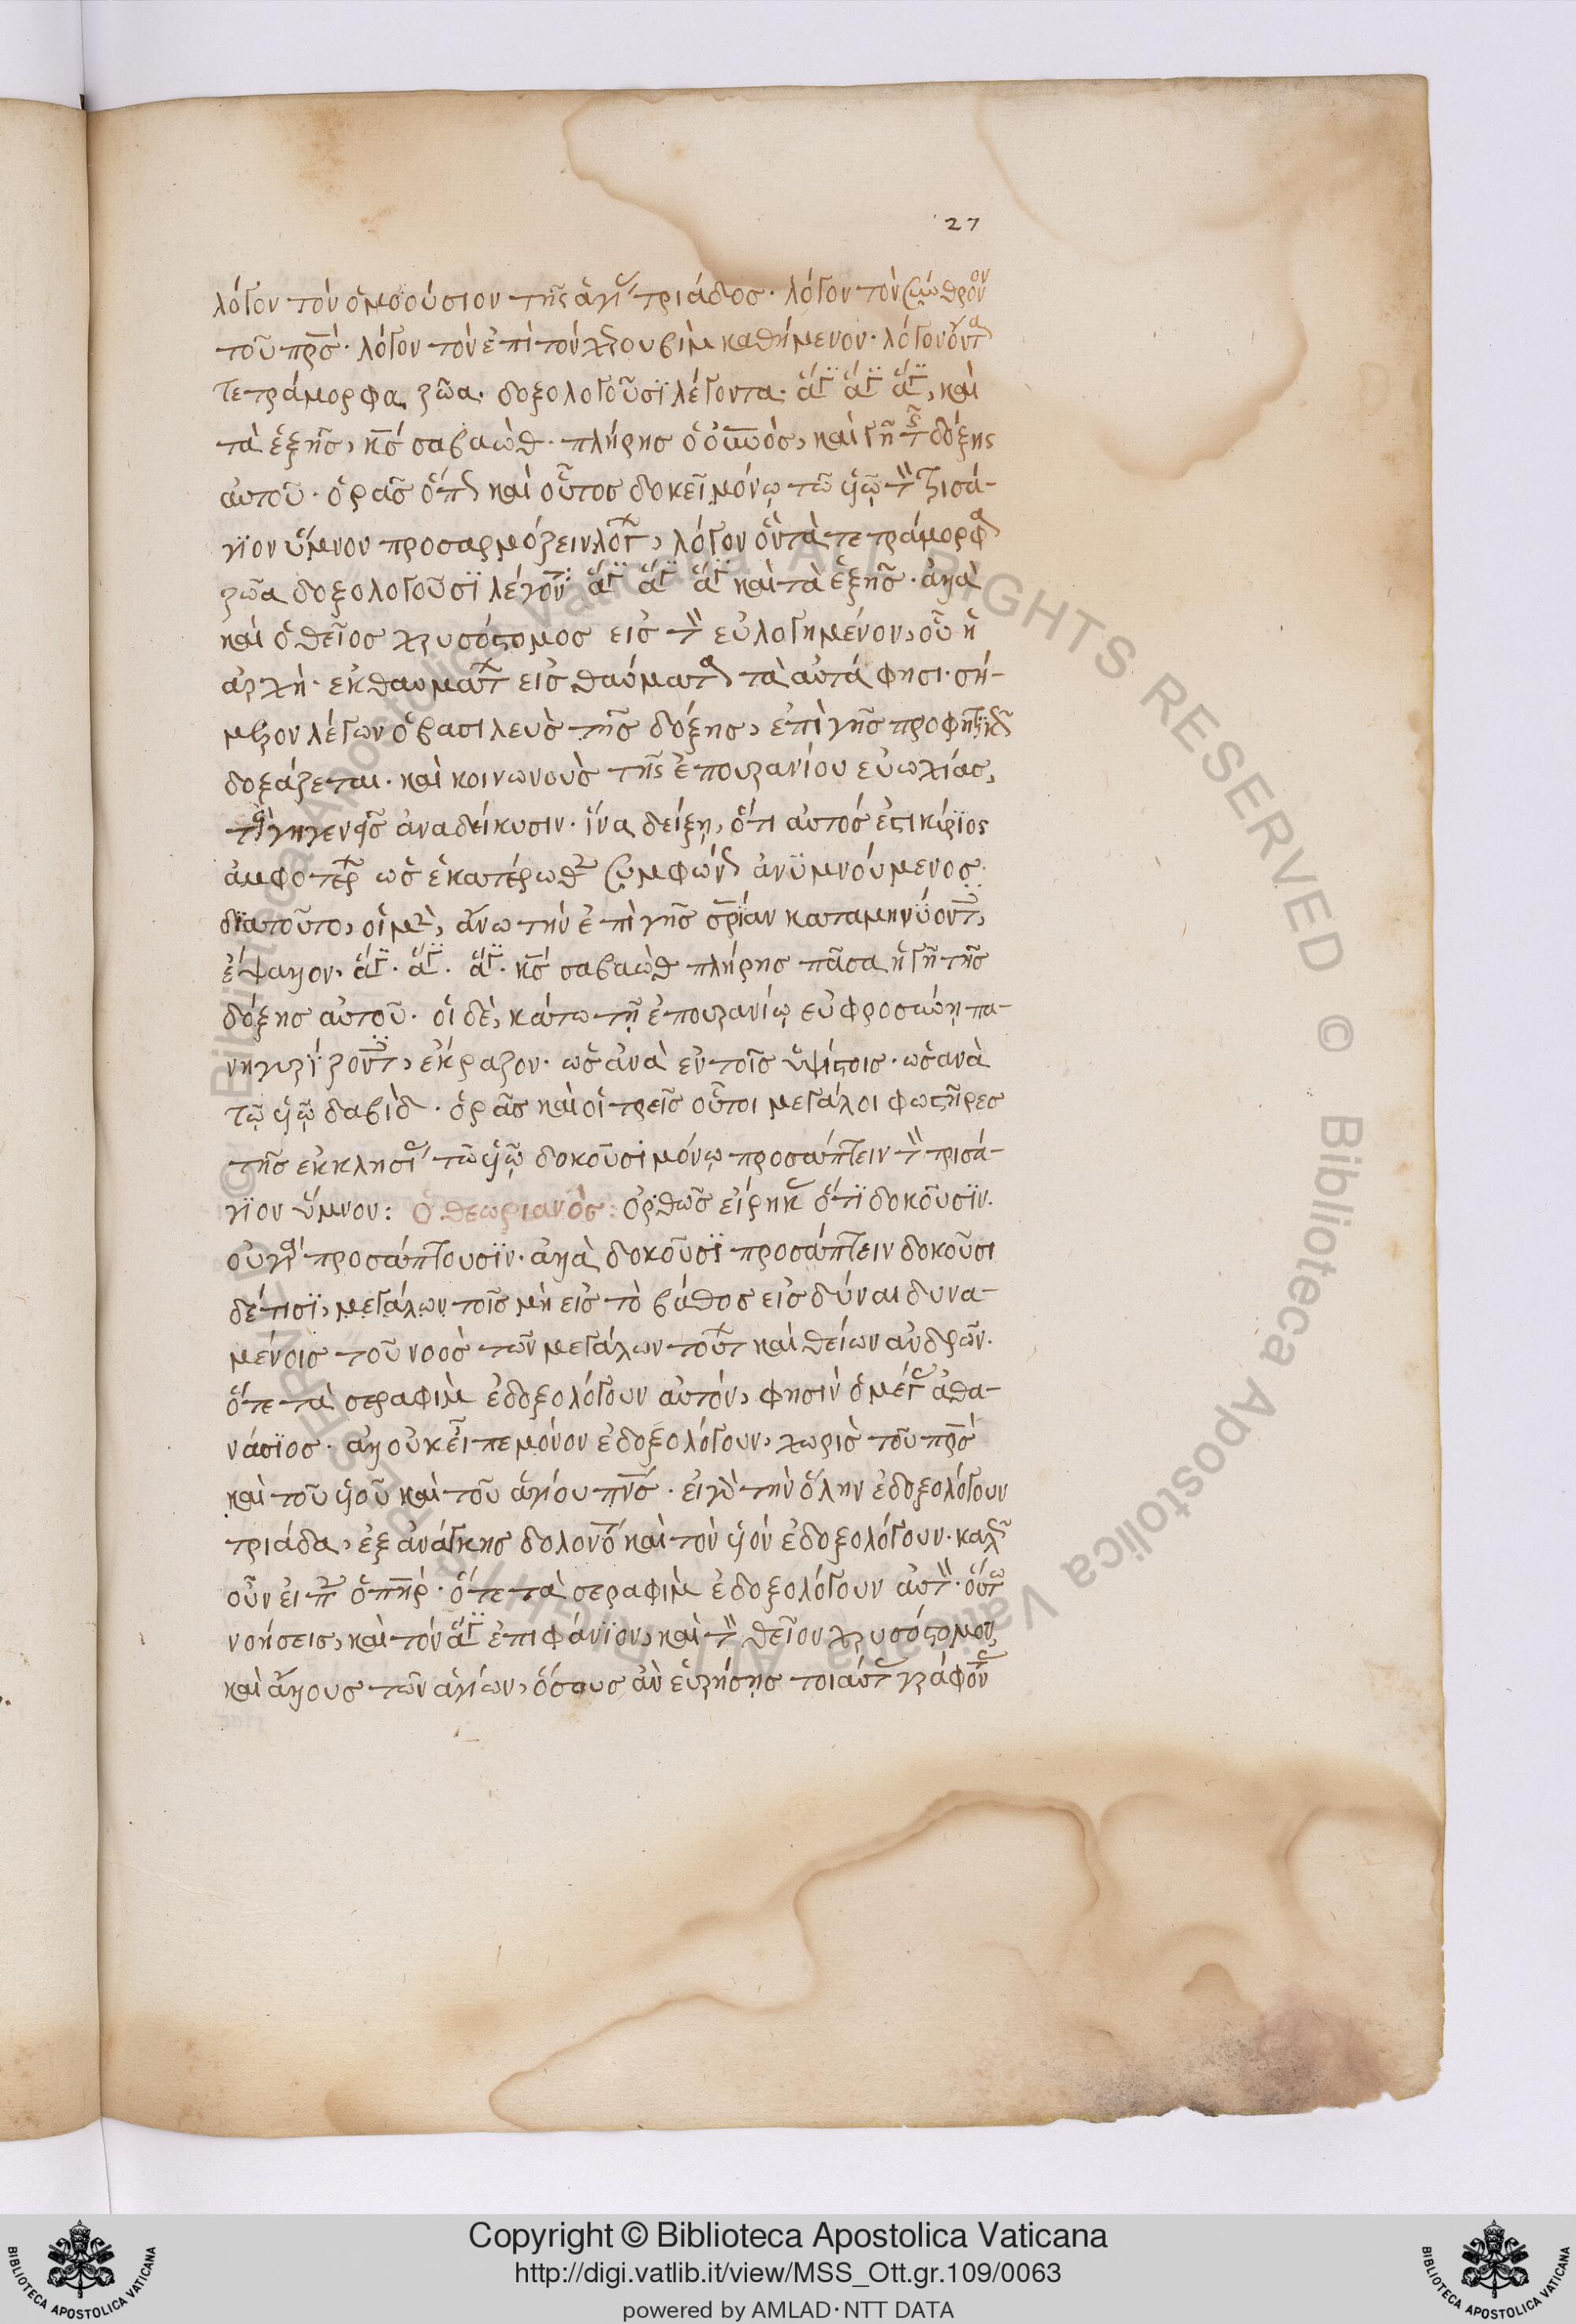 27
λόγον τὸν ὁμοούσιον τῆς ἁγί τριάδος· λόγον τὸν σύνθρονον
τοῦ πρς· λόγον τὸν ἐπὶ τὸν χερουβὶμ καθήμενον· λόγον ὃν τὰ
τετράμορφα ζῶα· δοξολογοῦσϊ λέγοντα· ἅγ ἅγ ἅγ, καὶ
τὰ ἑξῆς, κς σαβαώθ· πλήρης ὁ οὐνος, καὶ γῆ τῆς δόξης
αὐτοῦ· ὁρᾶς ὅπως καὶ οὗτος δοκεῖ μόνῳ τῶ υἱῷ τὸν τρισά-
γϊον ὕμνον προσαρμόζειν λόγ, λόγον ὃν τὰ τετράμορφα
ζῶα δοξολογοῦσϊ λέγον· ἅγ ἅγ ἅγ καὶ τὰ ἑξῆς· ἀλλὰ
καὶ ὁ θεῖος χρυσόστομος εἰς τὸν εὐλογημένον, οὗ ἡ
ἀρχή· ἐκ θαυμάτ εἰς θαύματα τὰ αὐτά φησι· σή-
μερον λέγων ὁ βασιλεὺς τῆς δόξης, ἐπὶ γῆς προφητικῶς
δοξάζεται· καὶ κοινωνοὺς τῆς ἐπουρανίου εὐωχίας,
τοὺς γηγενεῖς ἀναδείκυσιν· ἵνα δείξῃ, ὅτι αὐτός ἐστι κύρϊος
ἀμφοτέρ ὡς ἑκατέρωθεν συμφώνως ἀνϋμνούμενος·
δϊατοῦτο, οἱ μὲν, ἄνω τὴν ἐπὶ γῆς σρΐαν καταμηνύοντ,
ἔψαλλον, ἅγ· ἅγ· ἅγ· κς σαβαὼθ πλήρης πᾶσα ἡ γῆ τῆς
δόξης αὐτοῦ· οἱ δὲ, κάτω τῇ ἐπουρανίῳ εὐφροσύνῃ πα-
νηγυρΐζοντ, ἔκραζον· ὡσἀνὰ ἐν τοῖς ὑψίστοις· ὡσανὰ
τῷ υἱῷ δαβὶδ· ὁρᾶς καὶ οἱ τρεῖς οὗτοι μεγάλοι φωστῆρες
τῆς ἐκκλησί τῶ υἱῷ δοκοῦσι μόνῳ προσάπτειν τὸν τρισά-
γϊον ὕμνον: ὁ θεωριανὸς: ὀρθῶς εἴρηκ ὅτϊ δοκοῦσϊν·
οὐ γὰρ προσάπτουσϊν· ἀλλὰ δοκοῦσϊ προσάπτειν δοκοῦσι
δέ τισϊ, μεγάλων τοῖς μὴ εἰς τὸ βάθος εἰσδύναι δυνα-
μένοις τοῦ νοὸς τῶν μεγάλων τούτ καὶ θείων ἀνδρῶν·
ὅτε τὰ σεραφὶμ ἐδοξολόγουν αὐτόν, φησὶν ὁ μέγ ἀθα-
νάσϊος· ἀλλ οὐκ εἶπε μόνον ἐδοξολόγουν, χωρὶς τοῦ πρς
καὶ τοῦ υἱοῦ καὶ τοῦ ἁγίου πνς· εἰ γὰρ τὴν ὅλην ἐδοξολόγουν
τριάδα, ἐξ ἀνάγκης δολονότ καὶ τὸν υἱὸν ἐδοξολόγουν· καλῶς
οὖν εἶπεν ὁ πηρ· ὅτε τὰ σεραφὶμ ἐδοξολόγουν αὐτὸν· οὕτω
νοήσεις, καὶ τὸν ἅγ ἐπιφάνϊον, καὶ τὸν θεῖον χρυσόστομον,
καὶ ἄλλους τῶν ἁγίων, ὅσους ἂν εὑρήσῃς τοιαῦτ γράφοντ
Copyright © Biblioteca Apostolica Vaticana
http://digi.vatlib.it/view/MSS_Ott.gr.109/0063
powered by AMLAD·NTT DATA